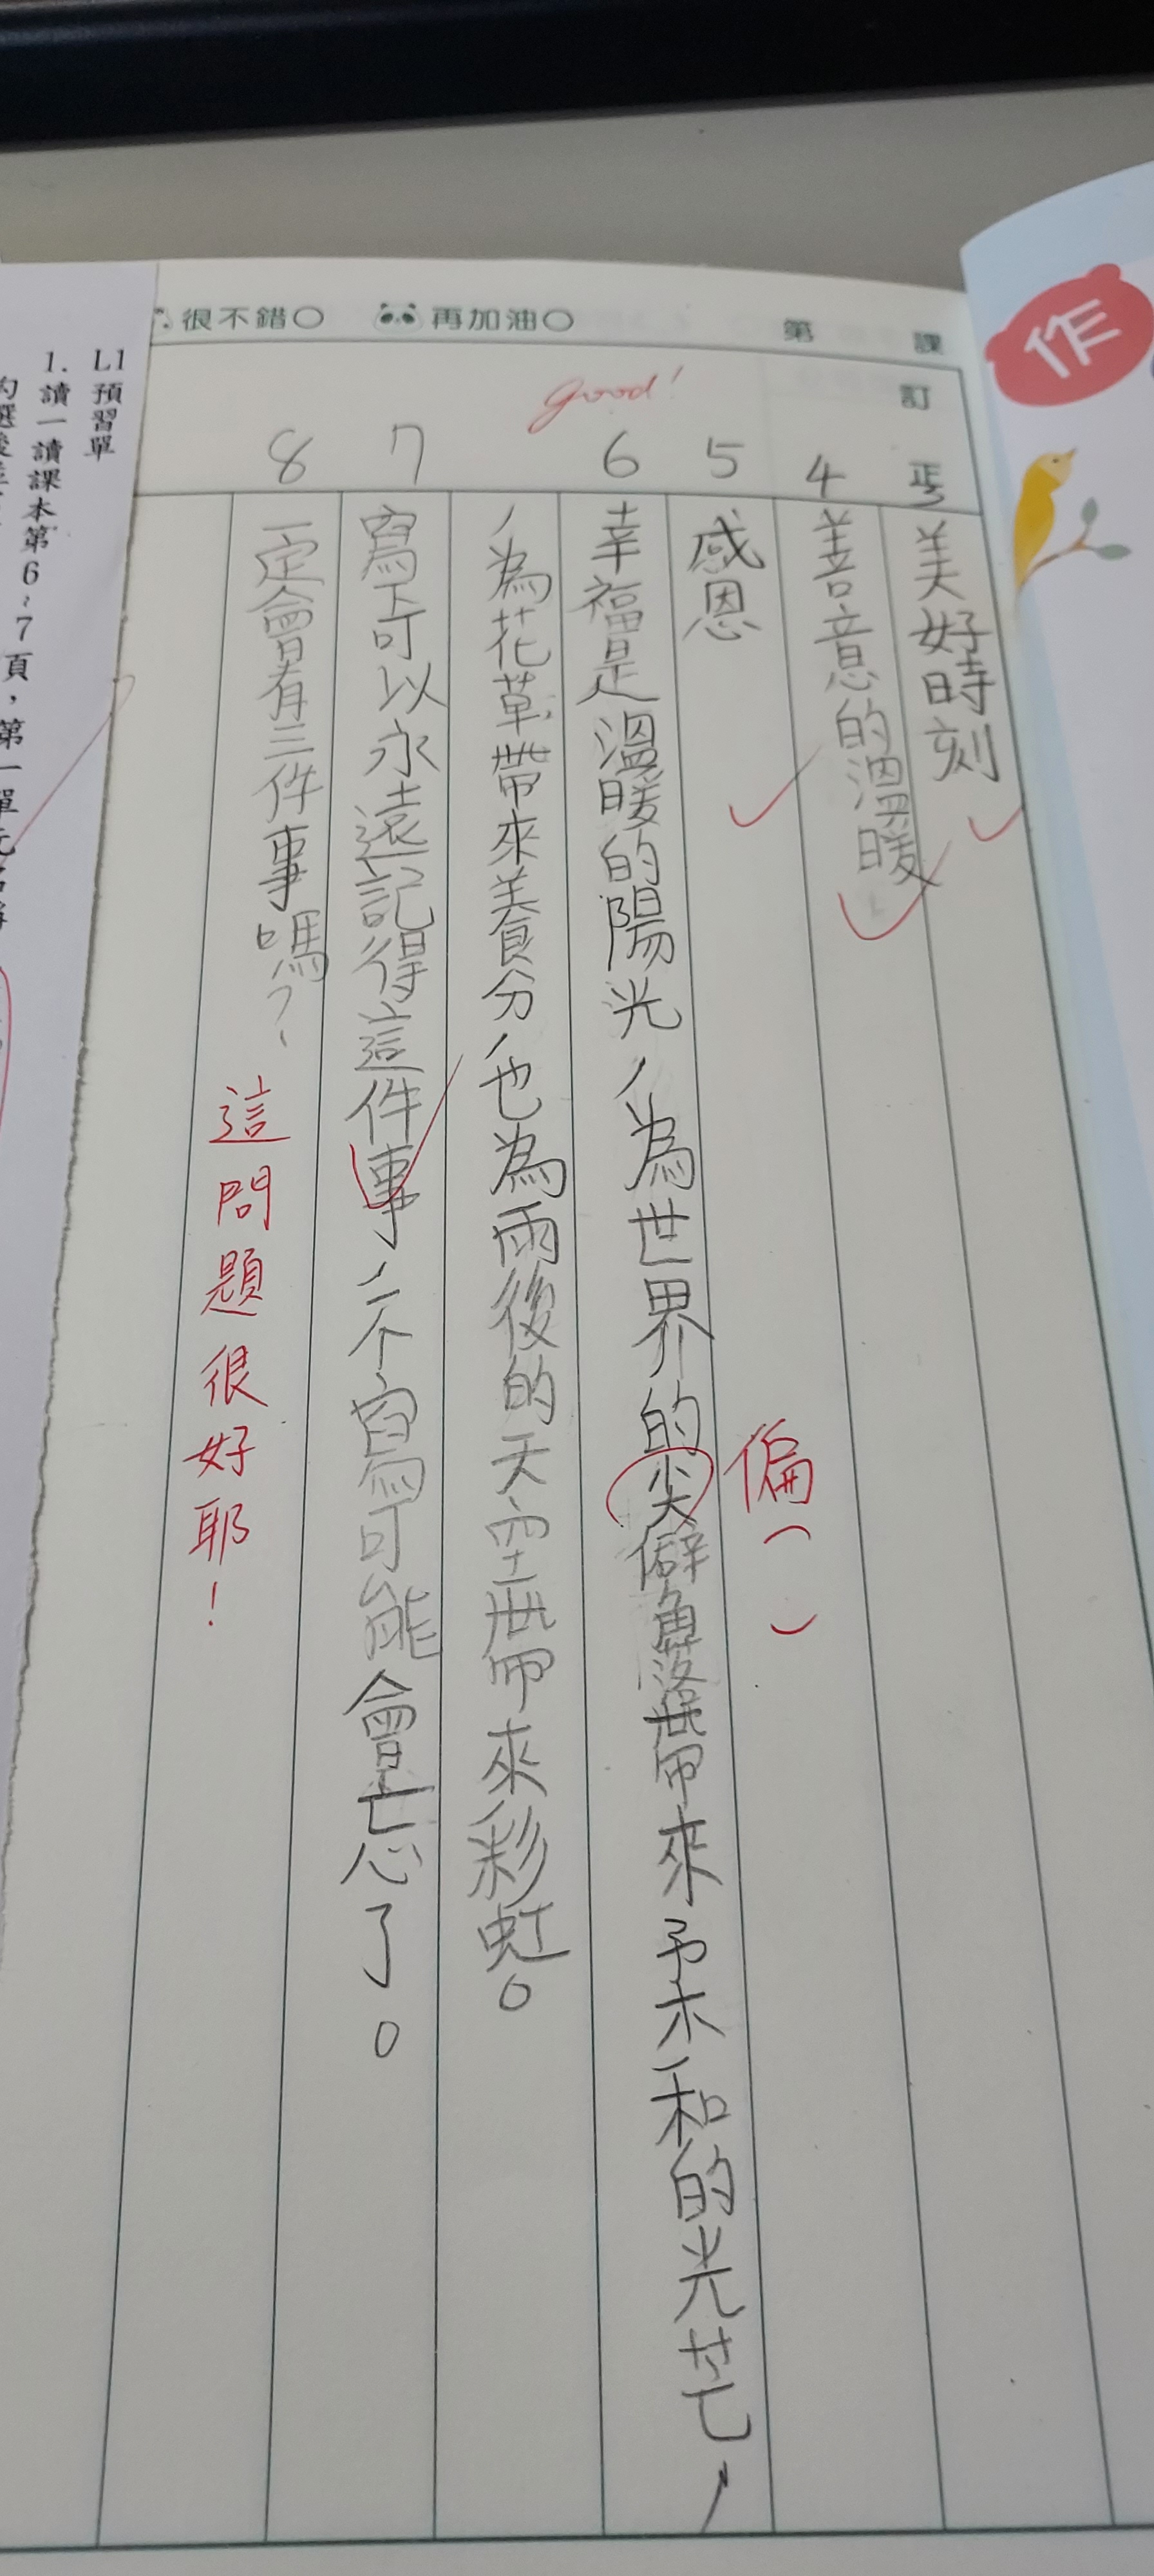 很不錯○ 再加油○
第 課
訂正
作
美好時刻
4 善意的溫暖
5 感恩
偏
good!
6 幸福是溫暖的陽光，為世界的尖僻角落帶來柔和的光芒，
，為花草帶來養分，也為雨後的天空帶來彩虹。
7 寫下可以永遠記得這件事，不寫可能會忘了。
8 一定會有三件事嗎？
這問題很好耶！
L1預習單
1.讀一讀課本第6、7頁，第一單元